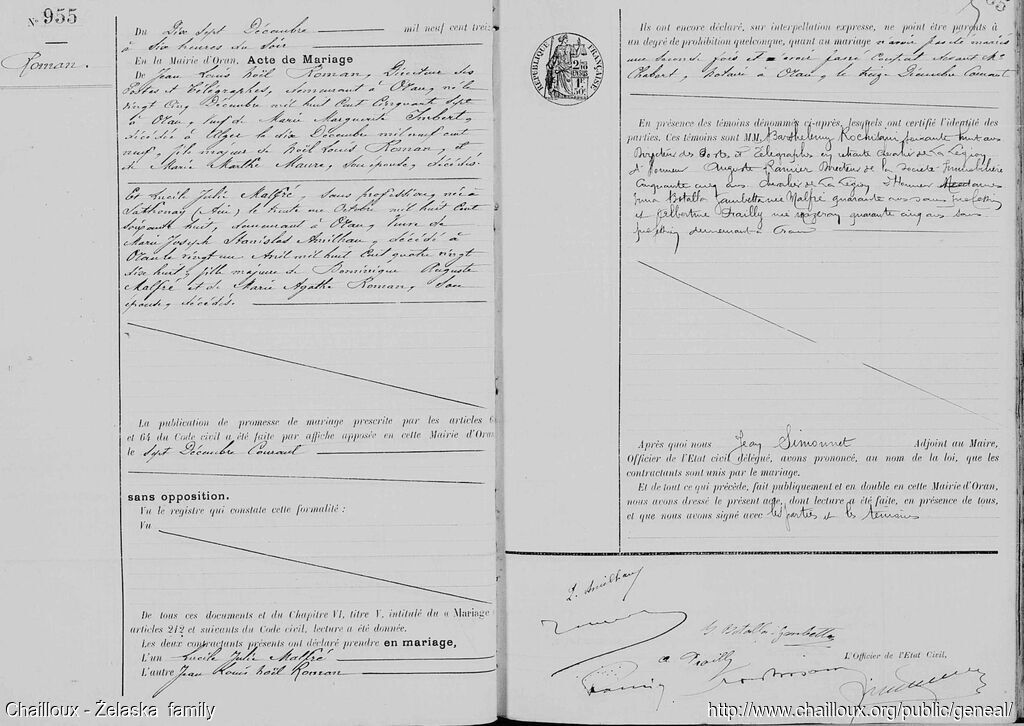 N° 955
Roman.
Du Dix sept Décembre mil neuf cent treiz
à Six heures du Soir
En la Mairie d'Oran, Acte de Mariage
De Jean Louis Noël Roman, Directeur des
Postes et Télégraphes, demeurant à Oran, né le
vingt cinq Décembre mil huit Cent Cinquante Sept
à Oran, veuf de Marie Marguerite Imbert,
décédée à Alger le dix Décembre mil neuf cent
neuf, fils majeur de Noël Louis Roman, et
de Marie Marthe Maure, Son épouse, décédés.
Et Lucile Julie Malfré, Sans profession, née à
Sathonay (Ain) le trente un Octobre mil huit Cent
soixante huit, demeurant à Oran, Veuve de
Marie Joseph Stanislas Amilhau, décédé à
Oran le vingt un Avril mil huit Cent quatre vingt
dix huit, fille majeure de Dominique Auguste
Malfré et de Marie Agathe Roman, Son
épouse, décédés.
La publication de promesse de mariage prescrite par les articles 6
et 64 du Code civil a été faite par affiche apposée en cette Mairie d'Oran
le Sept Décembre Courant
sans opposition.
Vu le registre qui constate cette formalité :
Vu
De tous ces documents et du Chapitre VI, titre V, intitulé du « Mariage
articles 212 et suivants du Code civil, lecture a été donnée.
Les deux contractants présents ont déclaré prendre en mariage,
L'un Lucile Julie Malfré
L'autre Jean Louis Noël Roman
RÉPUBLIQUE FRANÇAISE
Ils ont encore déclaré, sur interpellation expresse, ne point être parents à
un degré de prohibition quelconque, quant au mariage n'avoir pas été mariés
une seconde fois et avoir passé Contrat devant Me
Notaire à Oran, le Seize Décembre Courant
En présence des témoins dénommés ci-après, lesquels ont certifié l'identité des
parties. Ces témoins sont MM. Barthélemy soixante huit ans
Directeur des Postes et Télégraphes en retraite Chevalier de la Légion
d'honneur Auguste Directeur de la Société Immobilière
Cinquante cinq ans Chevalier de la Légion d'Honneur
Botalla Gambetta née Malfré quarante ans sans profession
et Albertine Frailly née quarante cinq ans sans
profession demeurant à Oran
Après quoi nous Jean Simonnet Adjoint au Maire,
Officier de l'Etat civil délégué, avons prononcé, au nom de la loi, que les
contractants sont unis par le mariage.
Et de tout ce qui précède, fait publiquement et en double en cette Mairie d'Oran,
nous avons dressé le présent acte, dont lecture a été faite, en présence de tous,
et que nous avons signé avec les parties et les témoins
L. Amilhau
Botalla-Gambetta
a Frailly
L'Officier de l'Etat Civil,
Chailloux - Żelaska family
http://www.chailloux.org/public/geneal/